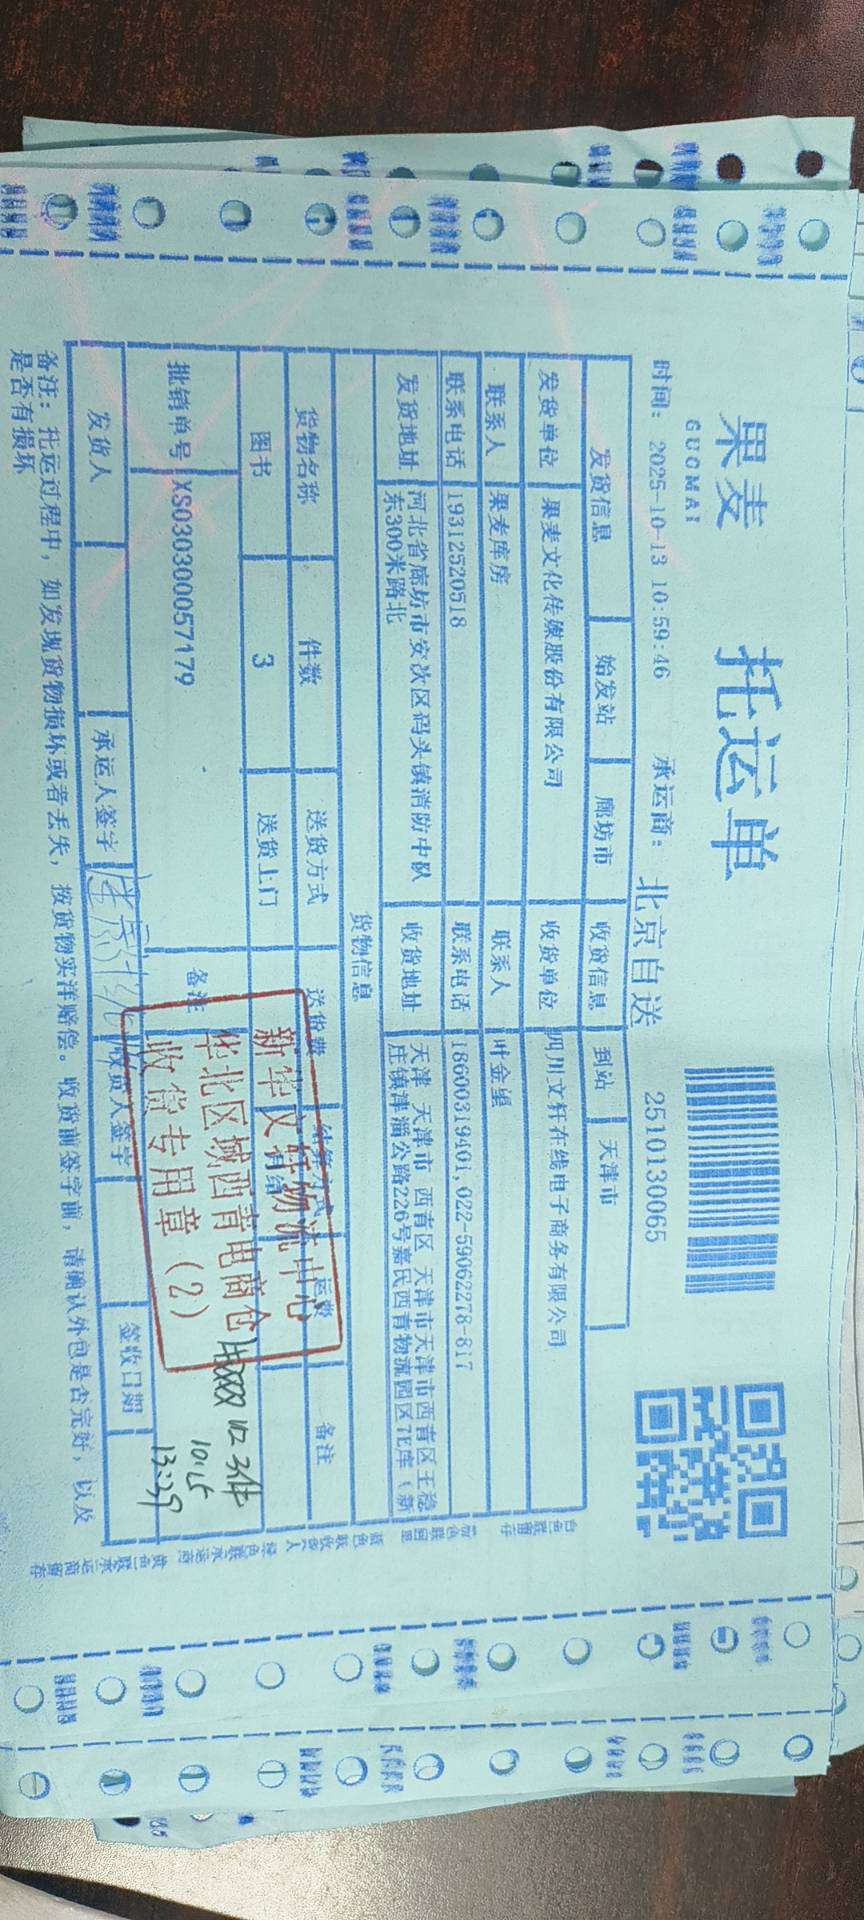 果麦 托运单
GUOMAI
时间: 2025-10-13 10:59:46 承运商: 北京自送 2510130065
发货信息 始发站 廊坊市 收货信息 到站 天津市
发货单位 果麦文化传媒股份有限公司 收货单位 四川文轩在线电子商务有限公司
联系人 果麦库房 联系人
联系电话 19312520518 联系电话 18600319401,022-59062278-817
发货地址 河北省廊坊市安次区码头镇消防中队东300米路北 收货地址 天津 天津市 西青区 天津市天津市西青区王稳庄镇津淄公路226号嘉民西青物流园区7E库（新
货物信息
货物名称 件数 送货方式 送货费 结算方式 运费 备注
图书 3 送货上门
批销单号 XS030300057179 备注
新华文轩物流中心
华北区域西青电商仓
收货专用章（2）
3件
10.15
13:39
发货人 承运人签字 收货人签字 签收日期
备注: 托运过程中, 如发现货物损坏或者丢失, 按货物实洋赔偿。收货前签字前, 请确认外包是否完好, 以及
是否有损坏